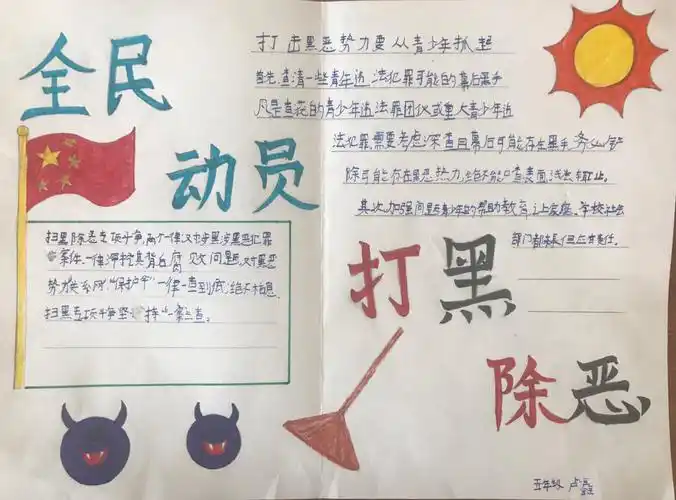 全民
动员
扫黑除恶专项斗争,两个一律又对涉黑涉恶犯罪
案件,一律深挖其背后腐败问题,对黑恶
势力关系网"保护伞"一律一查到底,绝不姑息。
扫黑专项斗争坚持一案三查。
打击黑恶势力要从青少年抓起
首先,查清一些青年违法犯罪可能的幕后黑手
凡是查花的青少年违法罪团伙或重大青少年违
法犯罪,需要考虑深查且幕后可能存在黑手,务必铲
除可能存在黑恶热力,绝不能只查表面,浅尝辄止。
其次,加强问题青少年的帮助教育,让家庭、学校社会
部门都担
打黑
除恶
五年级 卢